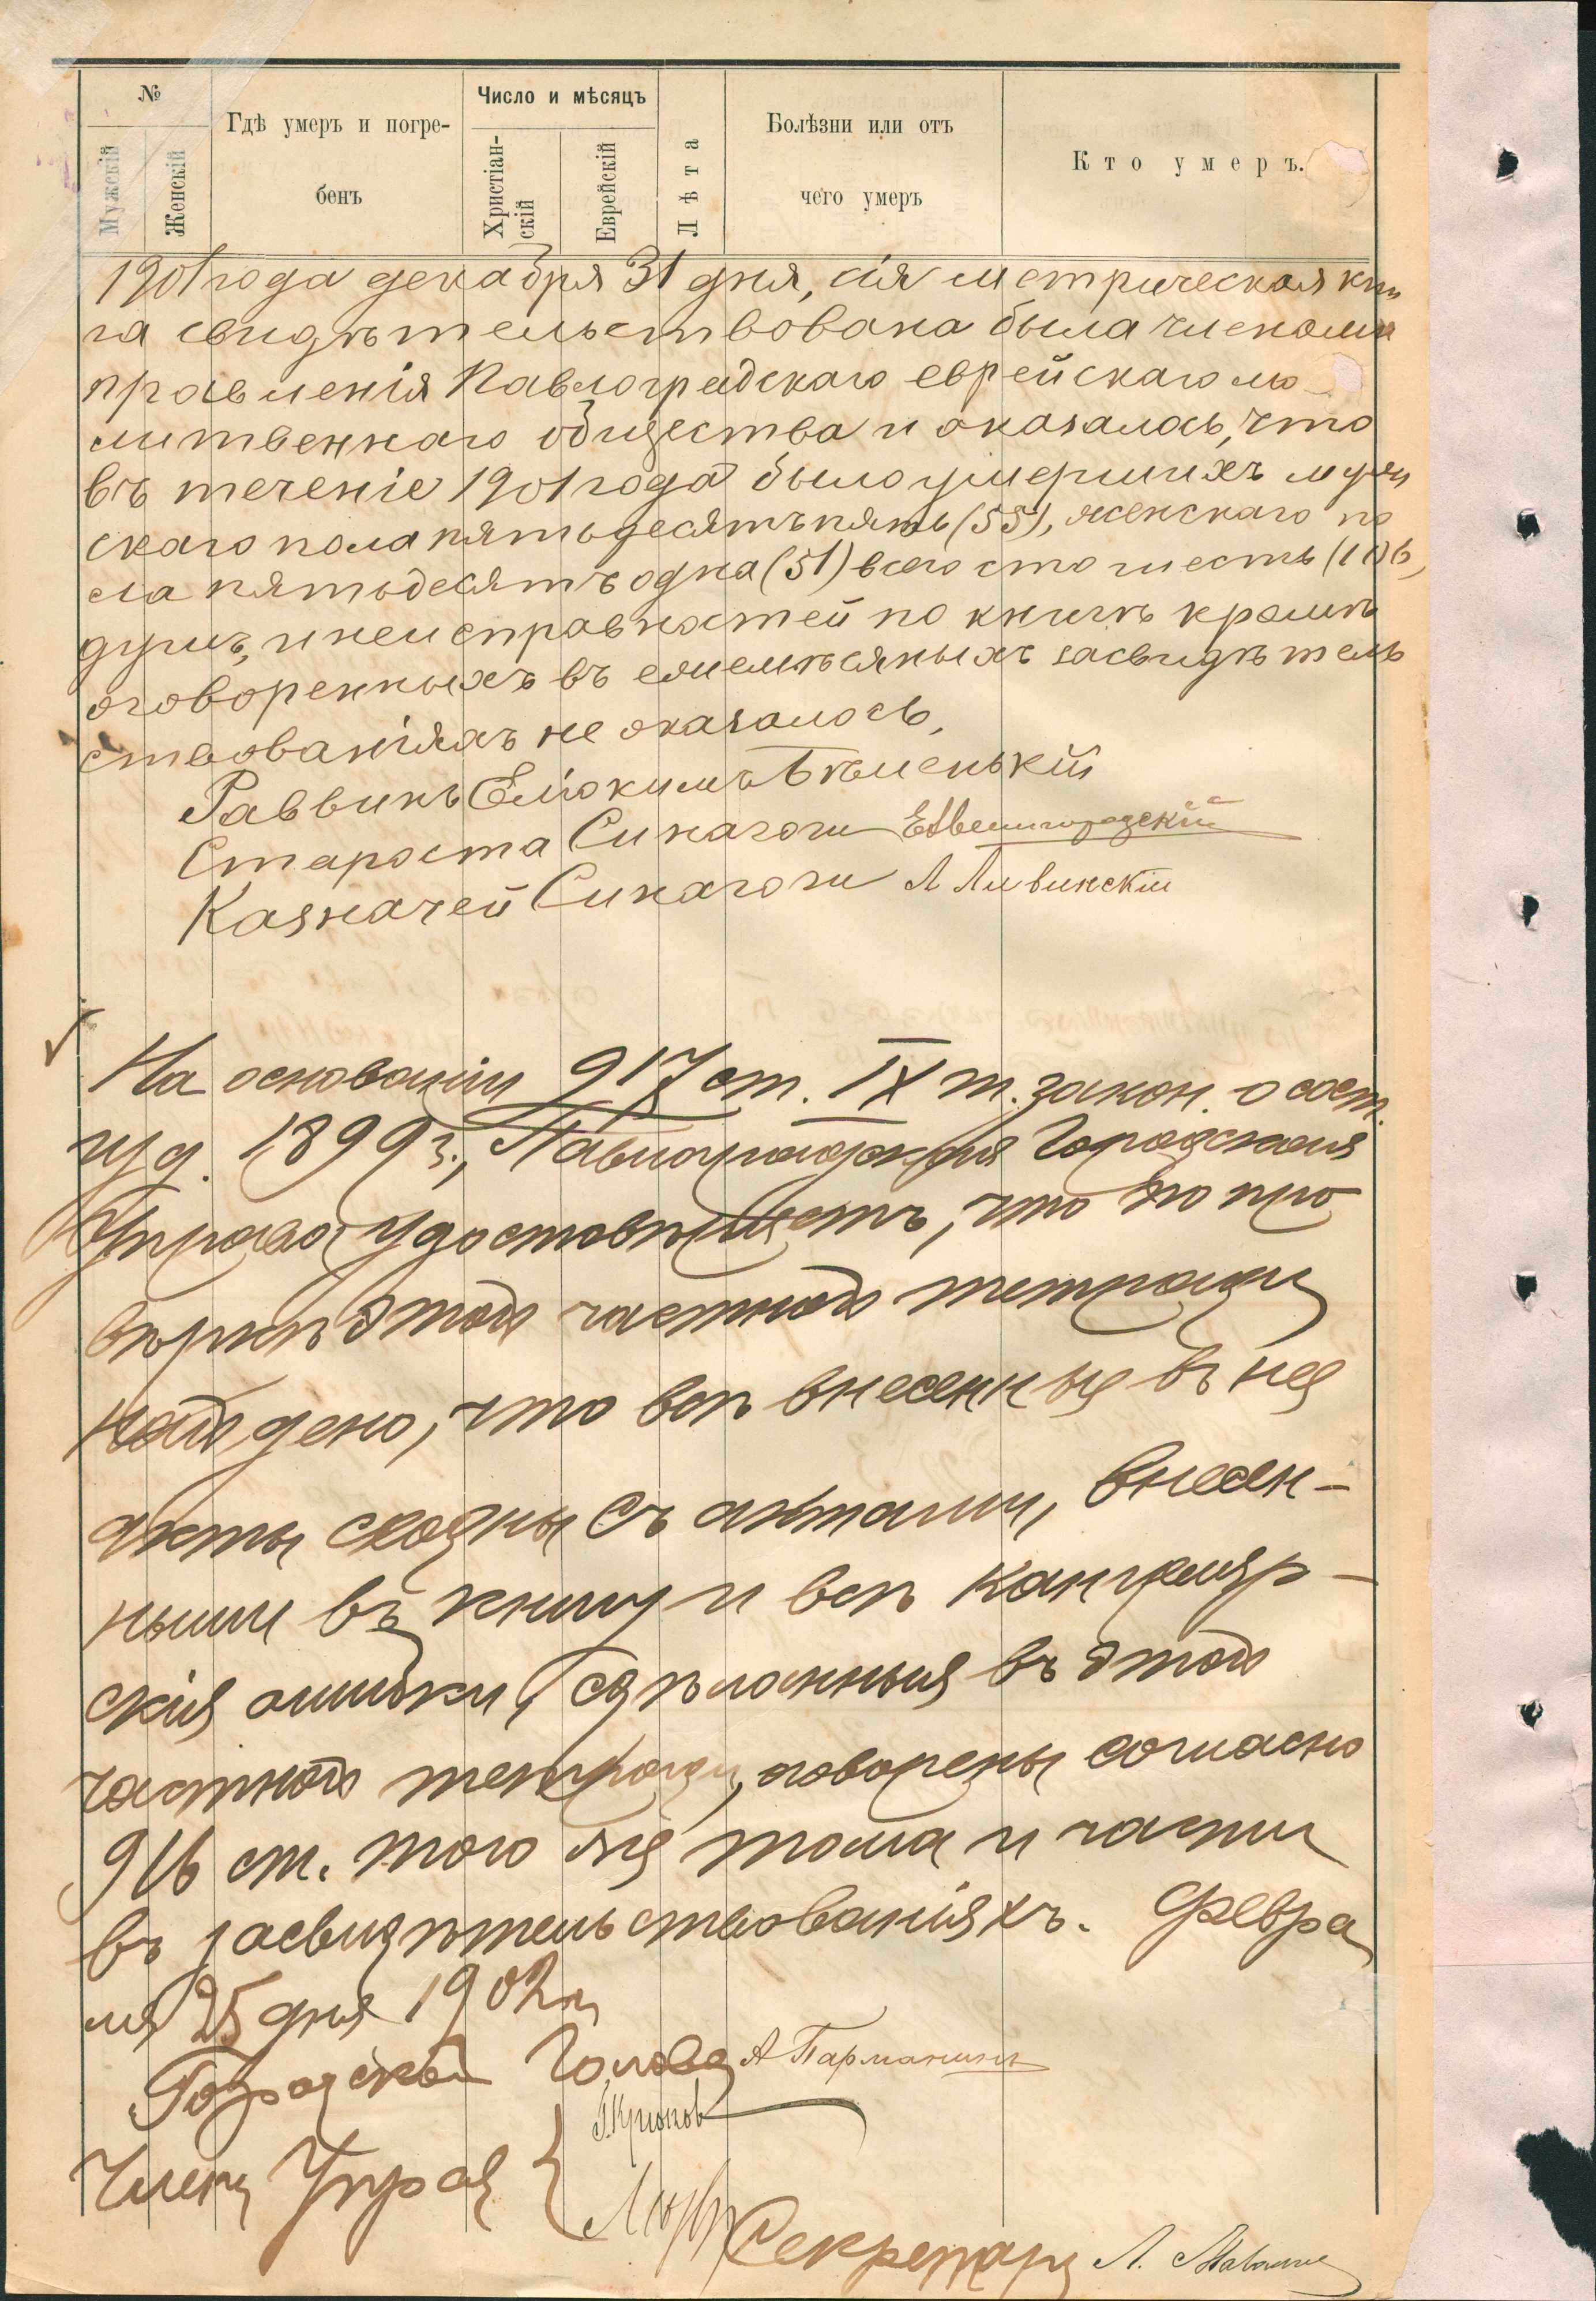 №
Мужскій
Женскій
Гдѣ умеръ и погре-
бенъ
Число и мѣсяцъ
Христіан-
скій
Еврейскій
Лѣта
Болѣзни или отъ
чего умеръ
Кто умеръ.
1901 года декабря 31 дня, сія метрическая кни
га свидѣтельствована была членами
правленія Павлоградскаго еврейскаго мо
литвеннаго общества и оказалось, что
въ теченіе 1901 года было умершихъ муж
скаго пола пятьдесятъ пять (55), женскаго по
ла пятьдесятъ одна (51) всего сто шесть (106)
душъ, и неисправностей по книгѣ кромѣ
оговоренныхъ въ ежемѣсячныхъ засвидѣтель
ствованіяхъ не оказалось,
Раввинъ Еліокимъ Бѣленькій
Староста Синагоги
Казначей Синагоги Л Ливинскій
На основаніи 917 ст. IX т. закон. о сост.
изд. 1899 г., Павлоградская Городская
Управа удостовѣряетъ, что по про
вѣркѣ этой частной тетради
найдено, что всѣ внесенные въ нея
акты сходны съ актами, внесен-
ными въ книгу и всѣ канцеляр-
скія ошибки, сдѣланныя въ этой
частной тетради, оговорены согласно
916 ст. того же тома и части
въ засвидѣтельствованіяхъ. Февра
ля 25 дня 1902 г.
Городской Голова А Парманинъ
Члены Управы { Г. Крюковъ
Секретарь Л.